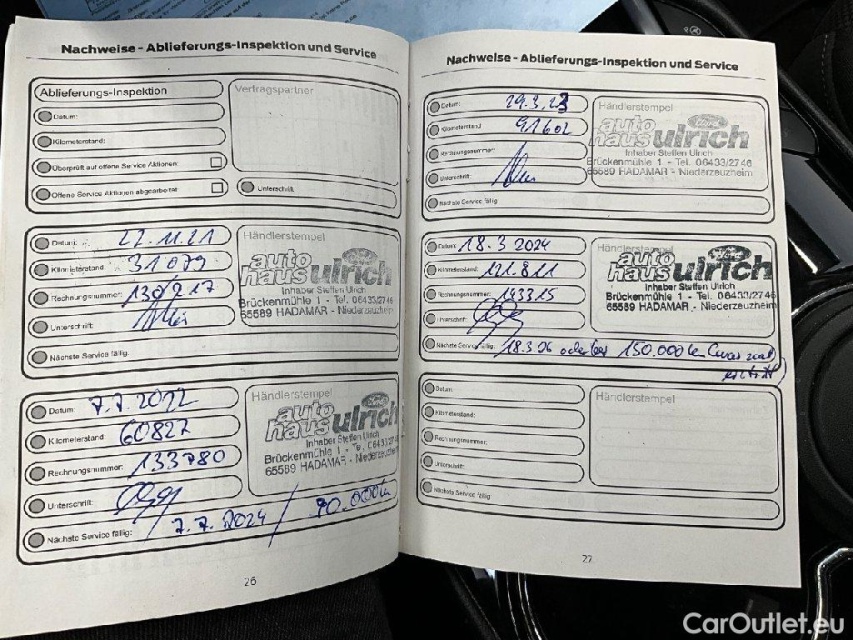 Nachweise - Ablieferungs-Inspektion und Service
Ablieferungs-Inspektion
Vertragspartner
Datum:
Kilometerstand:
Überprüft auf offene Service Aktionen:
Offene Service Aktionen abgearbeitet
Unterschrift:
Datum: 22.11.21
Kilometerstand 31079
Rechnungsnummer:
Unterschrift:
Nächste Service fällig:
Händlerstempel
auto haus ulrich
Ford
Inhaber Steffen Ulrich
Brückenmühle 1 - Tel. 06433/2746
65589 HADAMAR - Niederzeuzheim
Datum: 7.7.2022
Kilometerstand 60827
Rechnungsnummer: 133780
Unterschrift:
Nächste Service fällig: 7.7.2024 / 90.000
Händlerstempel
auto haus ulrich
Ford
Inhaber Steffen Ulrich
Brückenmühle 1 - Tel. 06433/27
65589 HADAMAR - Niederzeuzheim
26
Nachweise - Ablieferungs-Inspektion und Service
Datum: 29.3.23
Kilometerstand 91602
Rechnungsnummer:
Unterschrift:
Nächste Service fällig
Händlerstempel
auto haus ulrich
Ford
Inhaber Steffen Ulrich
Brückenmühle 1 - Tel. 06433/2746
65589 HADAMAR - Niederzeuzheim
Datum: 18.3.2024
Kilometerstand: 121.811
Rechnungsnummer: 143315
Unterschrift:
Nächste Service fällig: 18.3.26 oder 150.000
Händlerstempel
auto haus ulrich
Ford
Inhaber Steffen Ulrich
Brückenmühle 1 - Tel. 06433/2746
65589 HADAMAR - Niederzeuzheim
Datum:
Kilometerstand:
Rechnungsnummer:
Unterschrift:
Nächste Service fällig
Händlerstempel
27
CarOutlet.eu